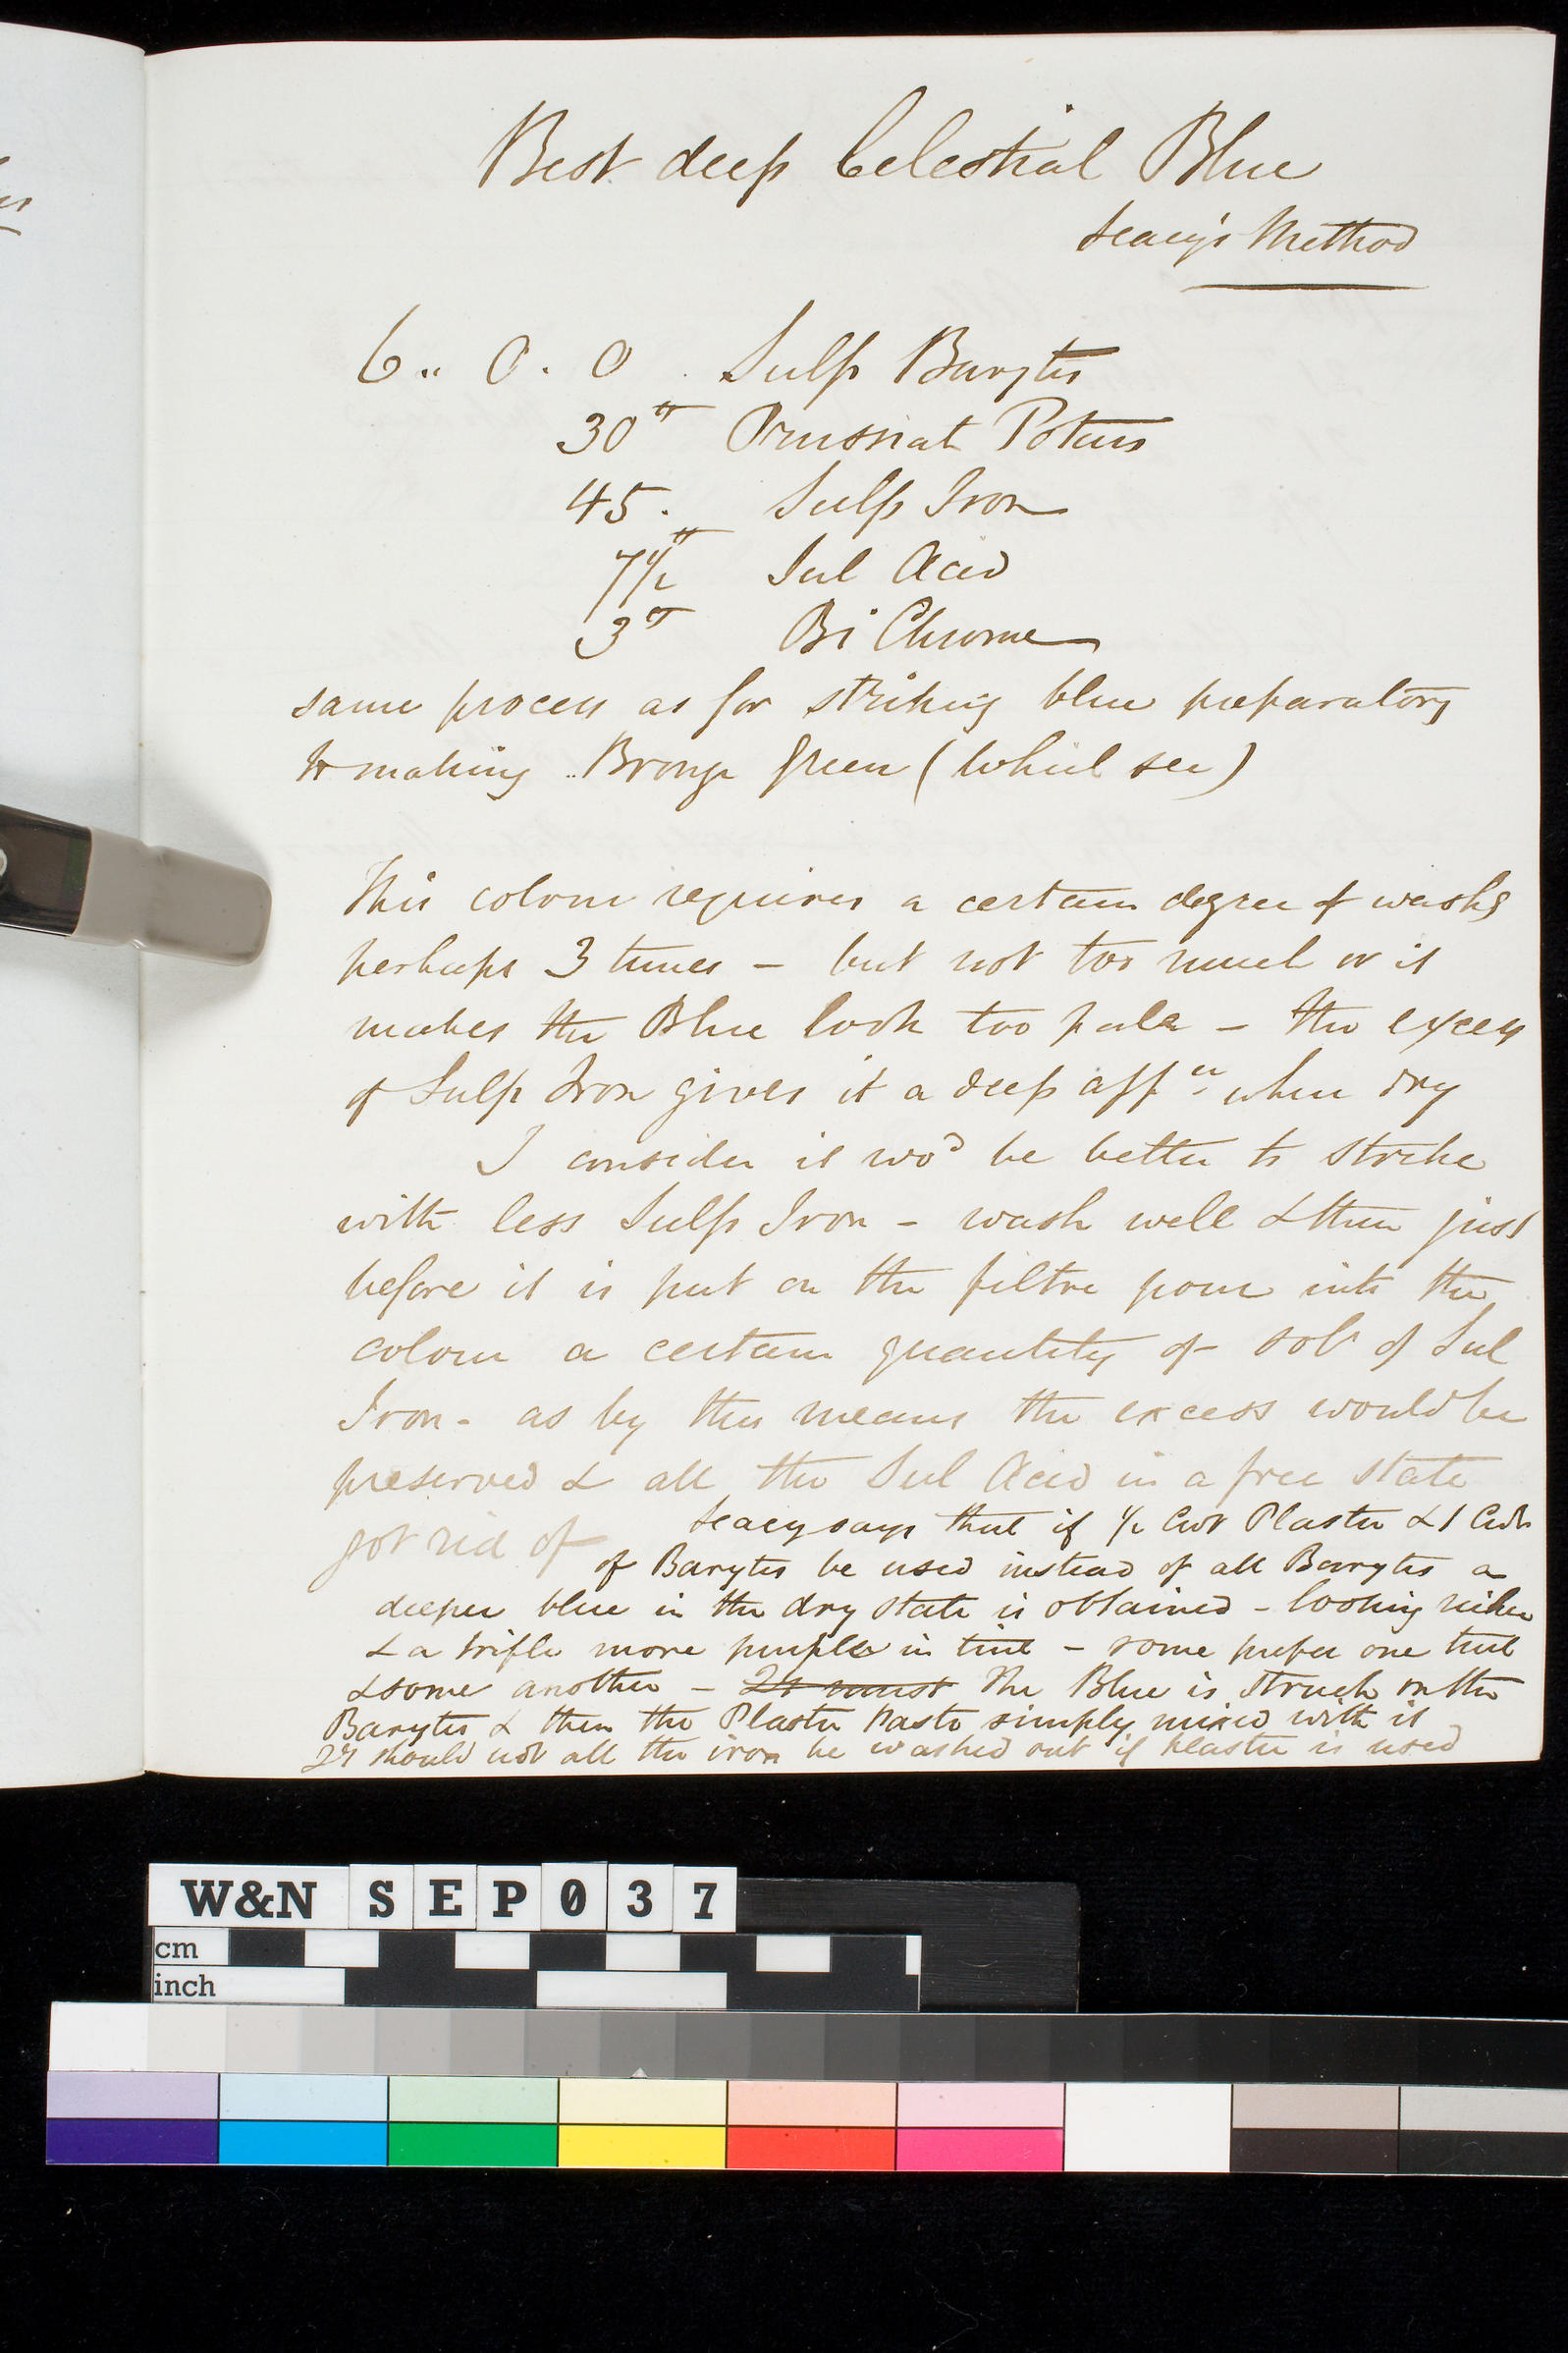 Best deep Celestial Blue
Seacy's Method
6.. 0. 0 Sulp Barytes
30 lb Prussiat Potass
45. Sulp Iron
7 1/2 lb Sul Acid
3 lb Bi Chrome
same process as for striking blue preparatory
to making .. Bronze Green (which see)
This colour requires a certain degree of washg
perhaps 3 times - but not too much or it
makes the Blue look too pale - the excess
of Sulp Iron gives it a deep appce when dry
I consider it wod be better to strike
with less Sulp Iron - wash well & then just
before it is put on the filtre pour into the
colour a certain quantity of sol of Sul
Iron - as by this means the excess would be
preserved & all the Sul Acid in a free state
got rid of
Seacy says that if 1/2 Cwt Plaster & 1 Cwt
of Barytes be used instead of all Barytes a
deeper blue in the dry state is obtained - looking richer
& a trifle more purple in tint - some prefer one tint
& some another - It must The Blue is struck on the
Barytes & then the Plaster Paste simply mixed with it
It should not all the iron be washed out if plaster is used
W&N SEP037
cm
inch